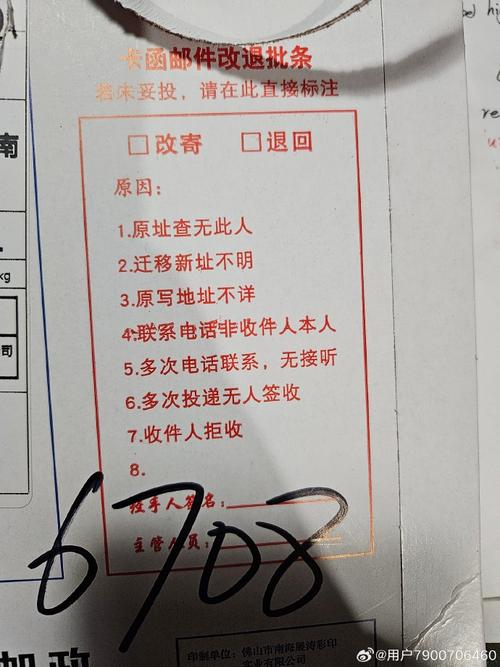 卡函邮件改退批条
若未妥投，请在此直接标注
□改寄 □退回
原因：
1.原址查无此人
2.迁移新址不明
3.原写地址不详
4.联系电话非收件人本人
5.多次电话联系，无接听
6.多次投递无人签收
7.收件人拒收
8.
投手人签名：
主管人员：
6708
印制单位：佛山市南海展涛彩印
实业有限公司
南
kg
司
邮政
re
@用户7900706460